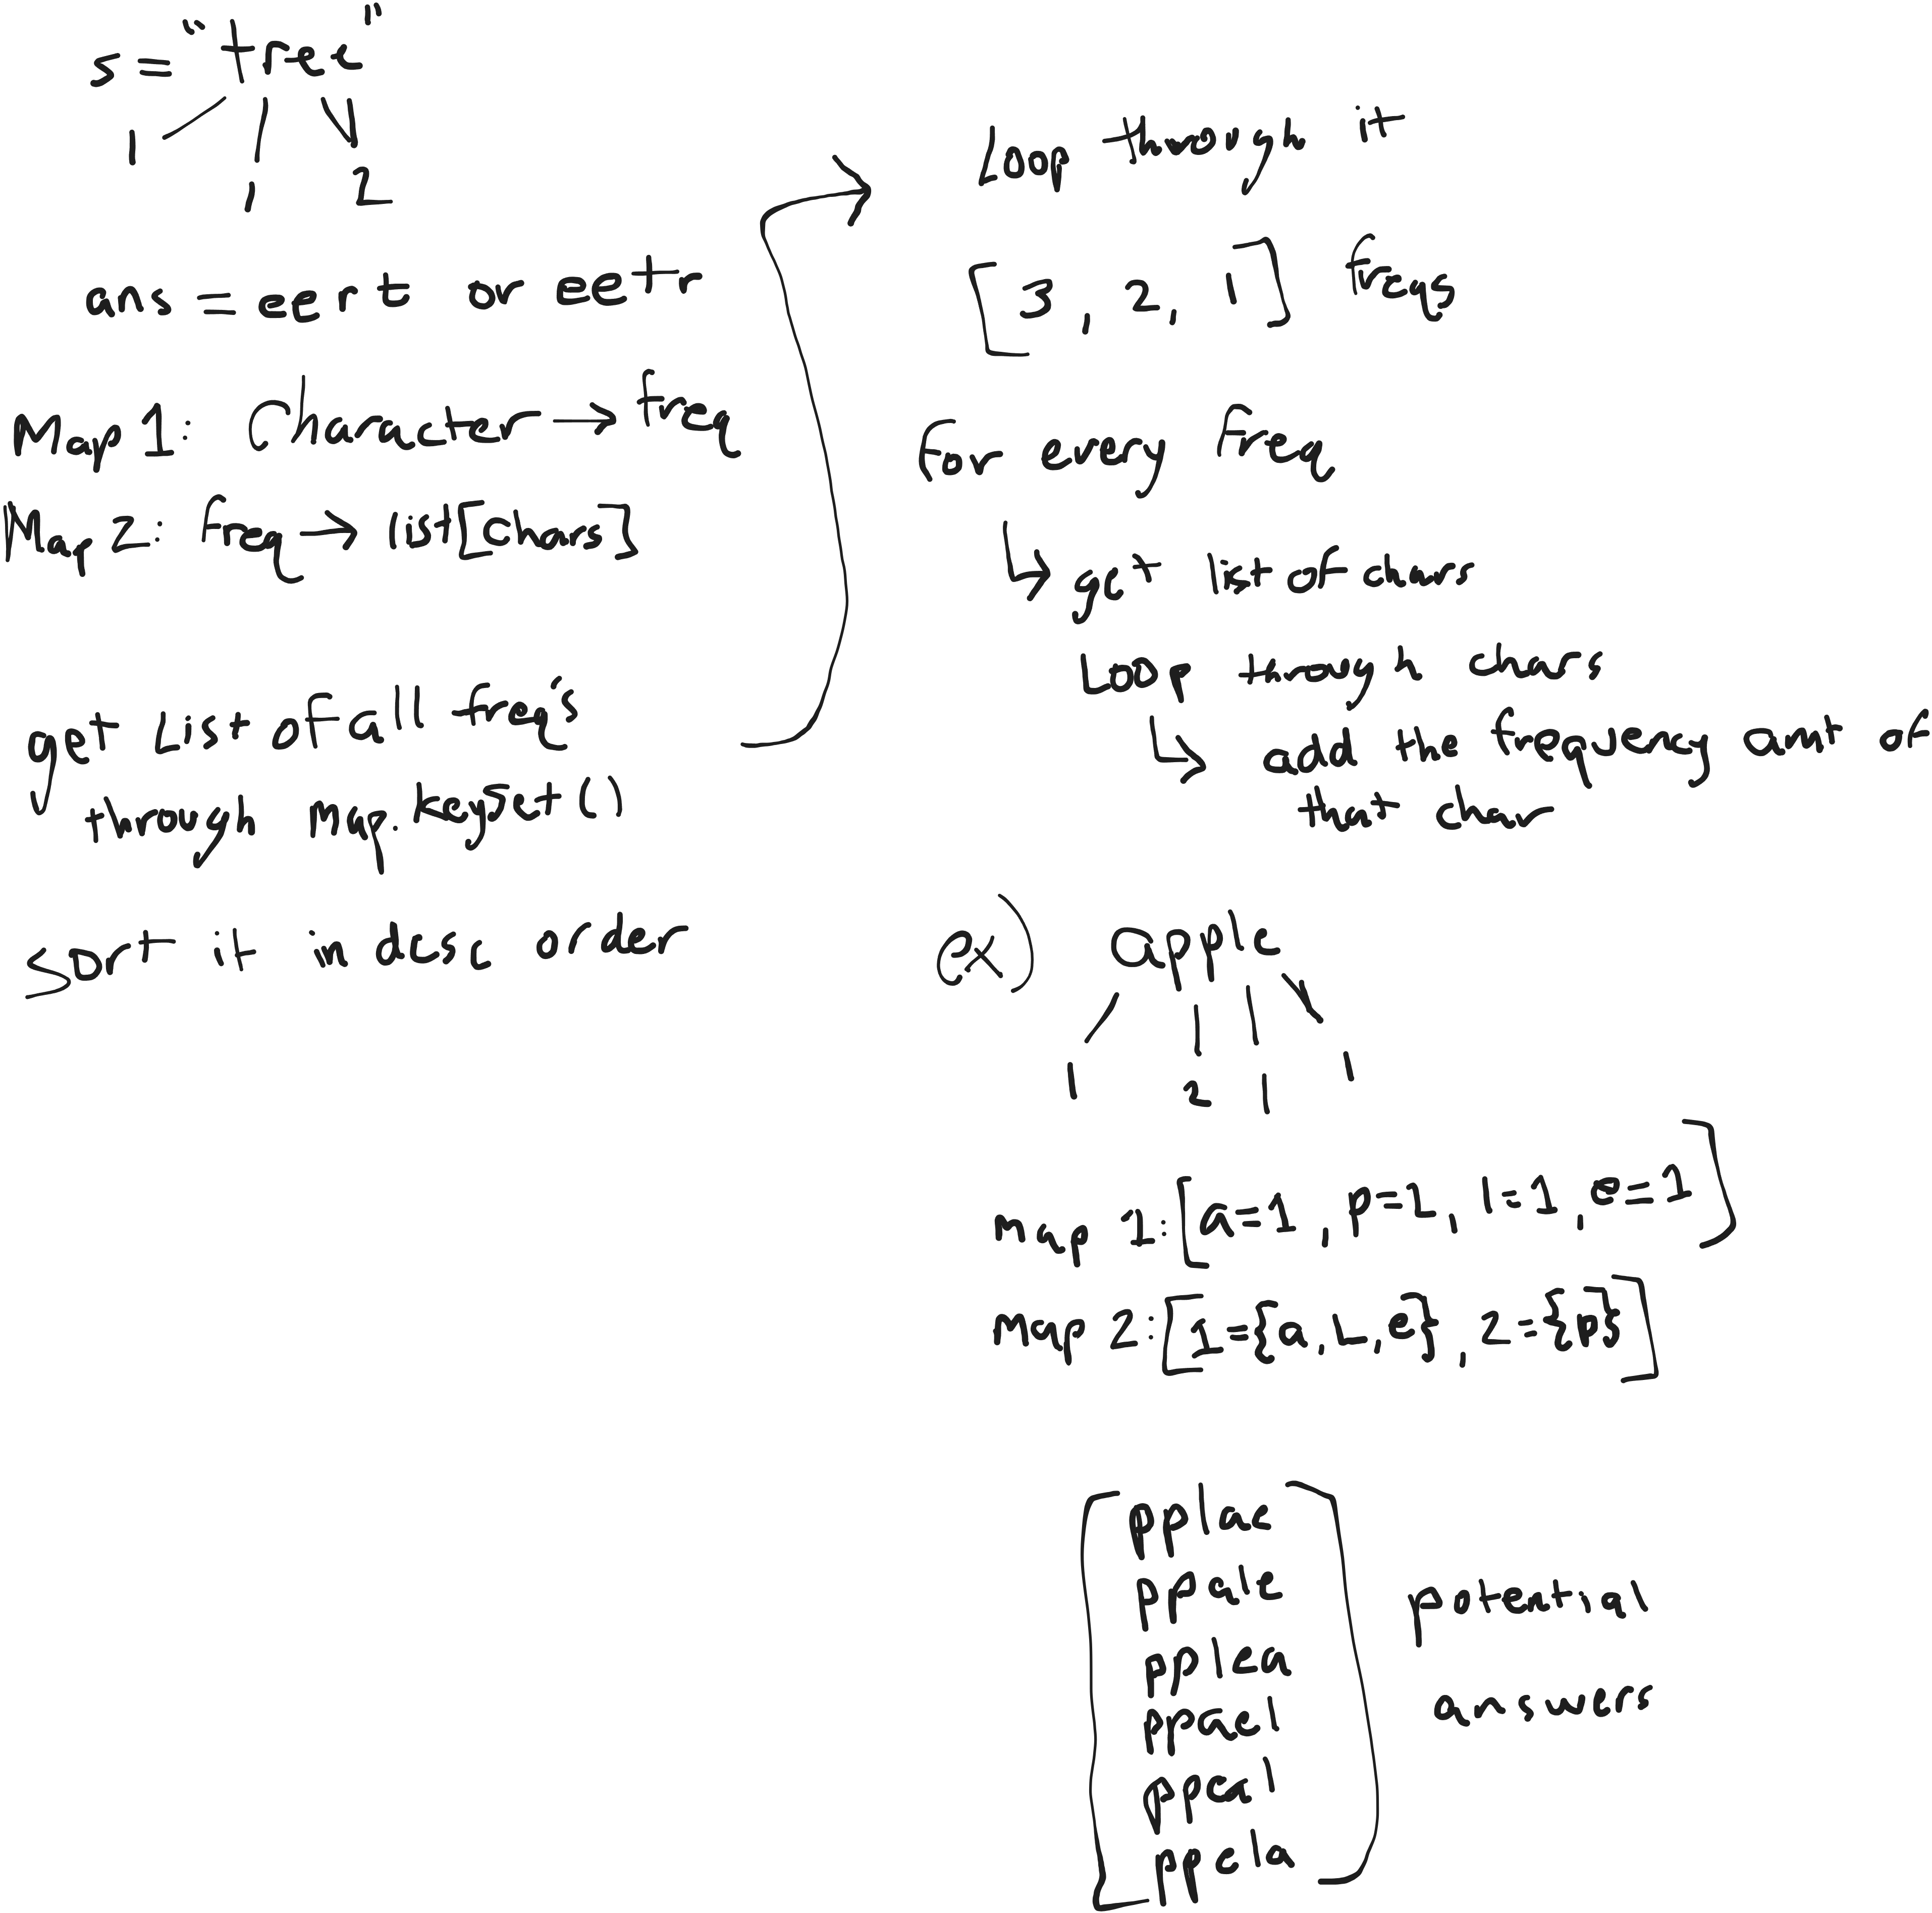 s = "tree"
1
1 2
ans = eert or eetr
Map 1: Character → freq
Map 2: freq → list[chars]
get List of all freq's
through mq.keyset()
sort it in desc order
Loop through it
[3, 2, 1] freqs
For every Freq
↳ get list of chars
Loop through chars
↳ add the frequency amt of
that char
ex) apple
1 2 1 1
map 1: [a=1, p=2, l=1, e=1]
Map 2: [1={a, L, e}, 2={p}]
pplae
ppale
pplea
ppael
ppeal
ppela
potential
answers